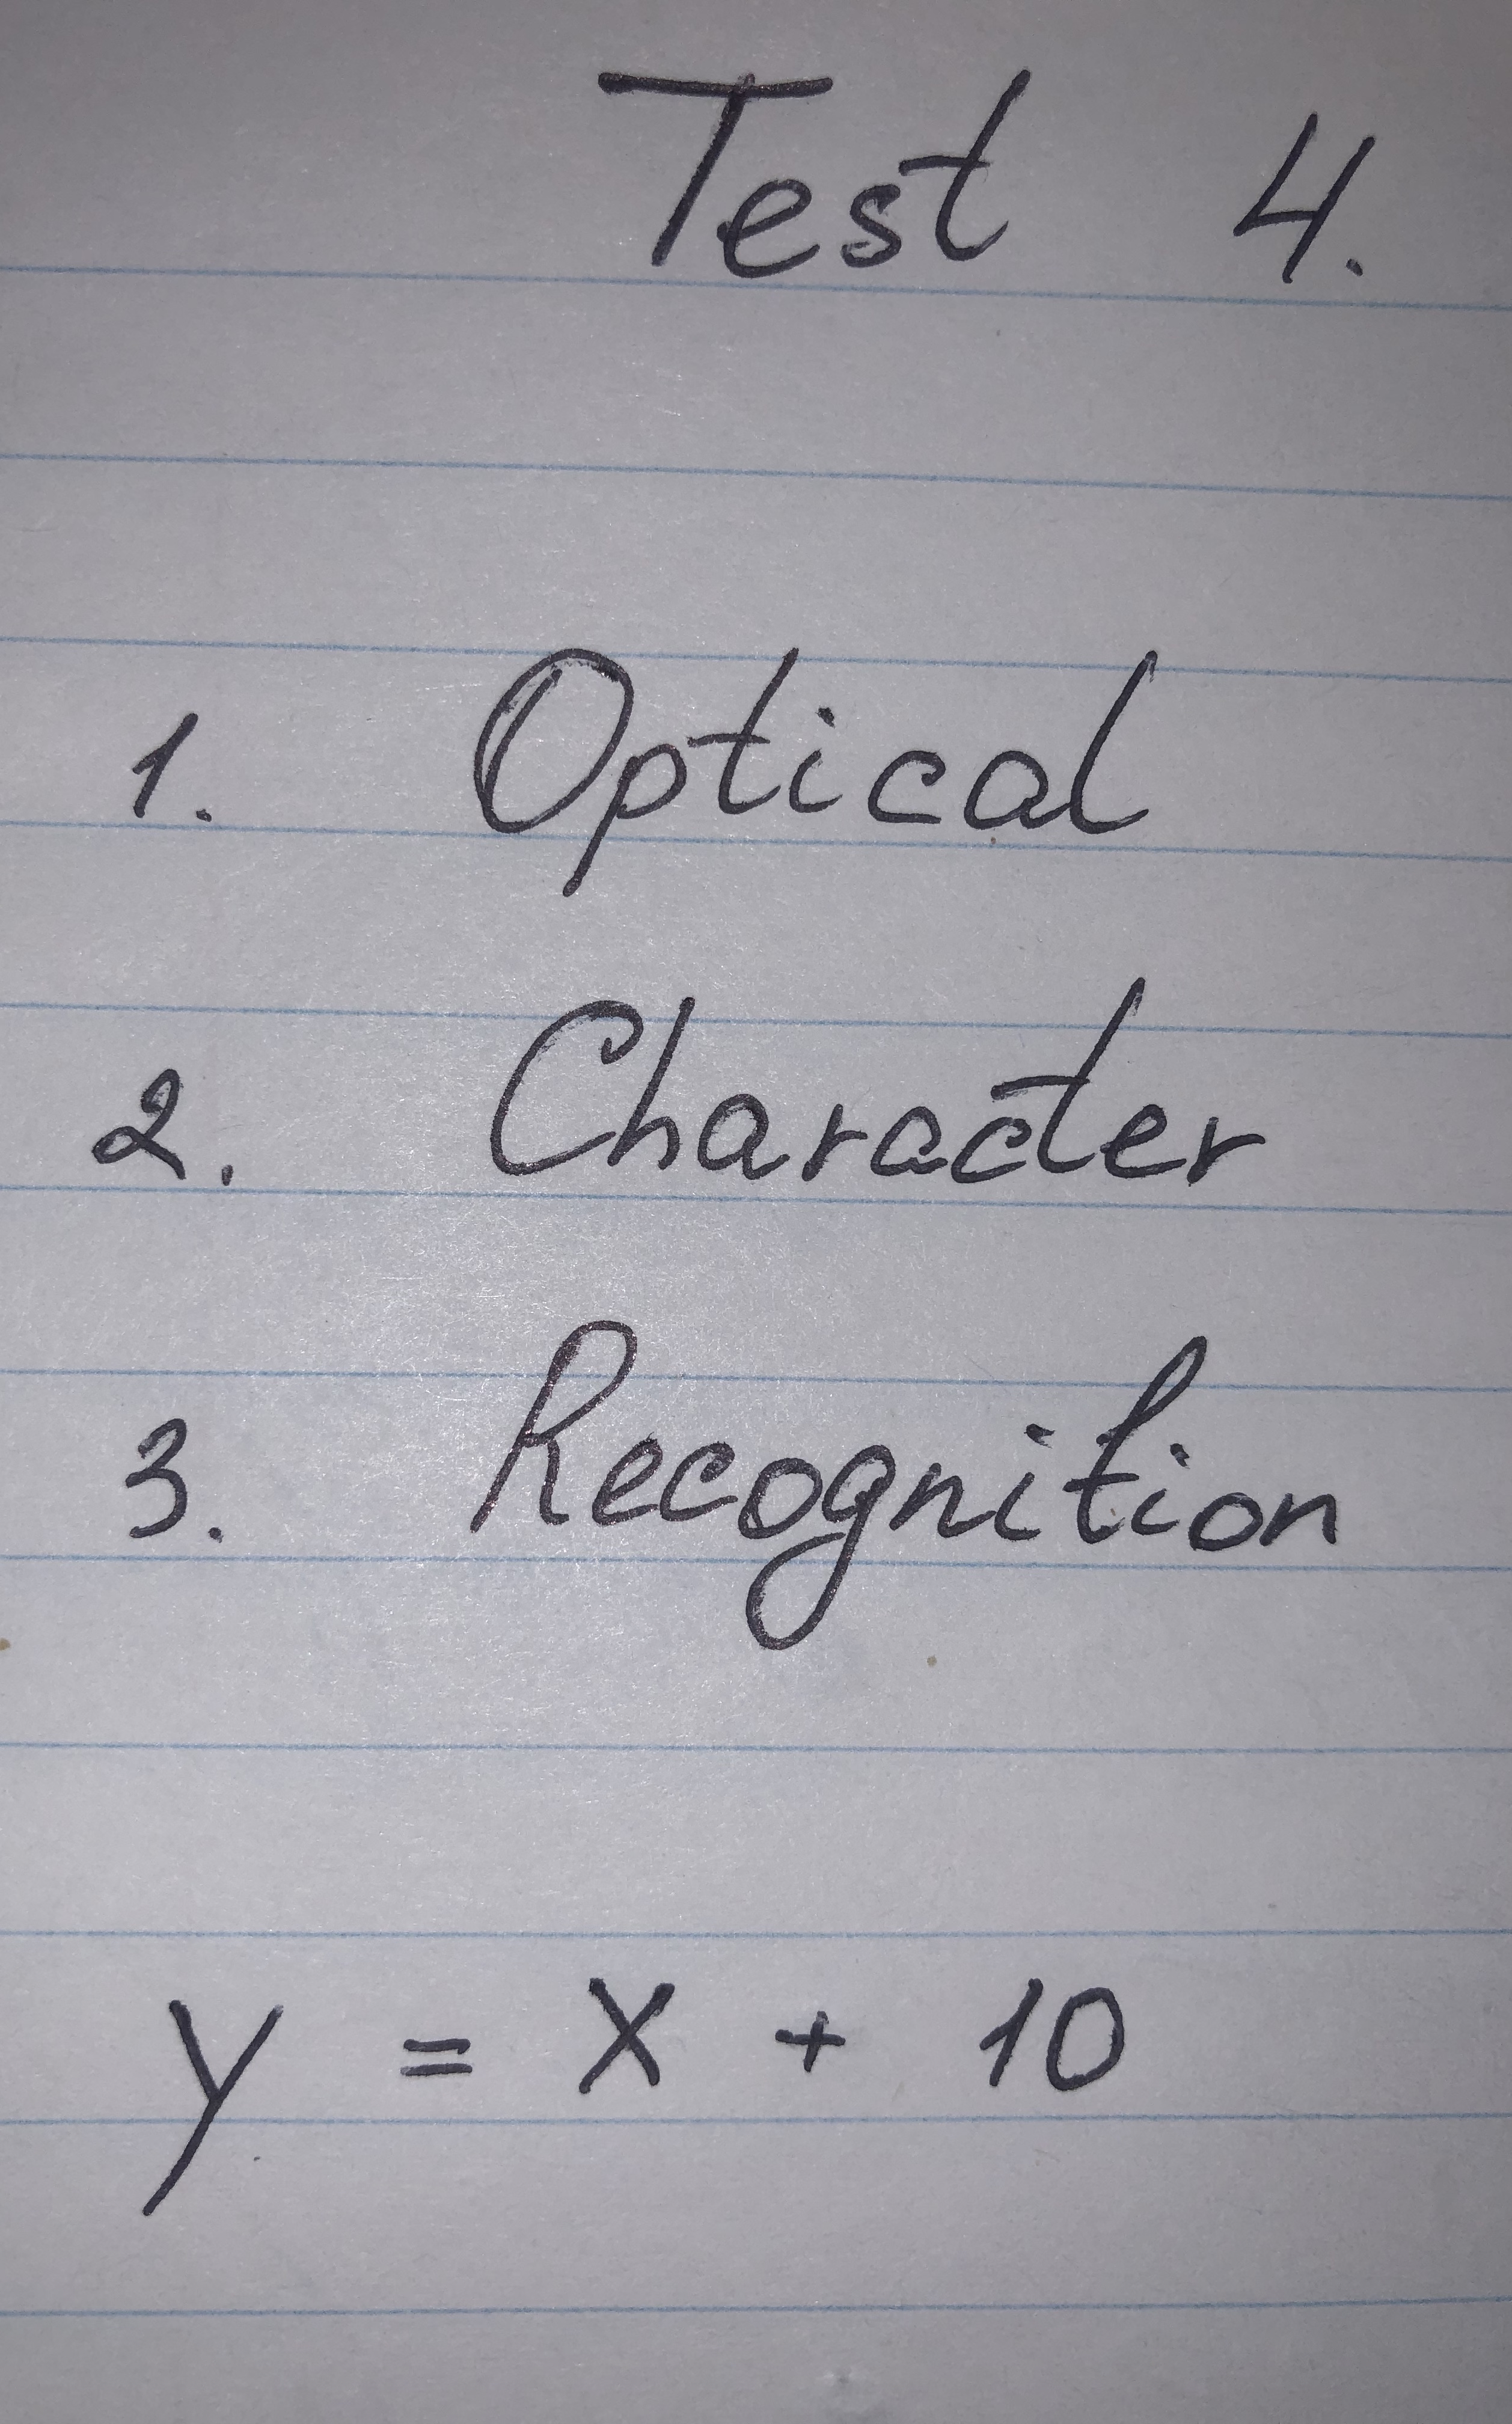 Test 4.
1. Optical
2. Character
3. Recognition
y = x + 10